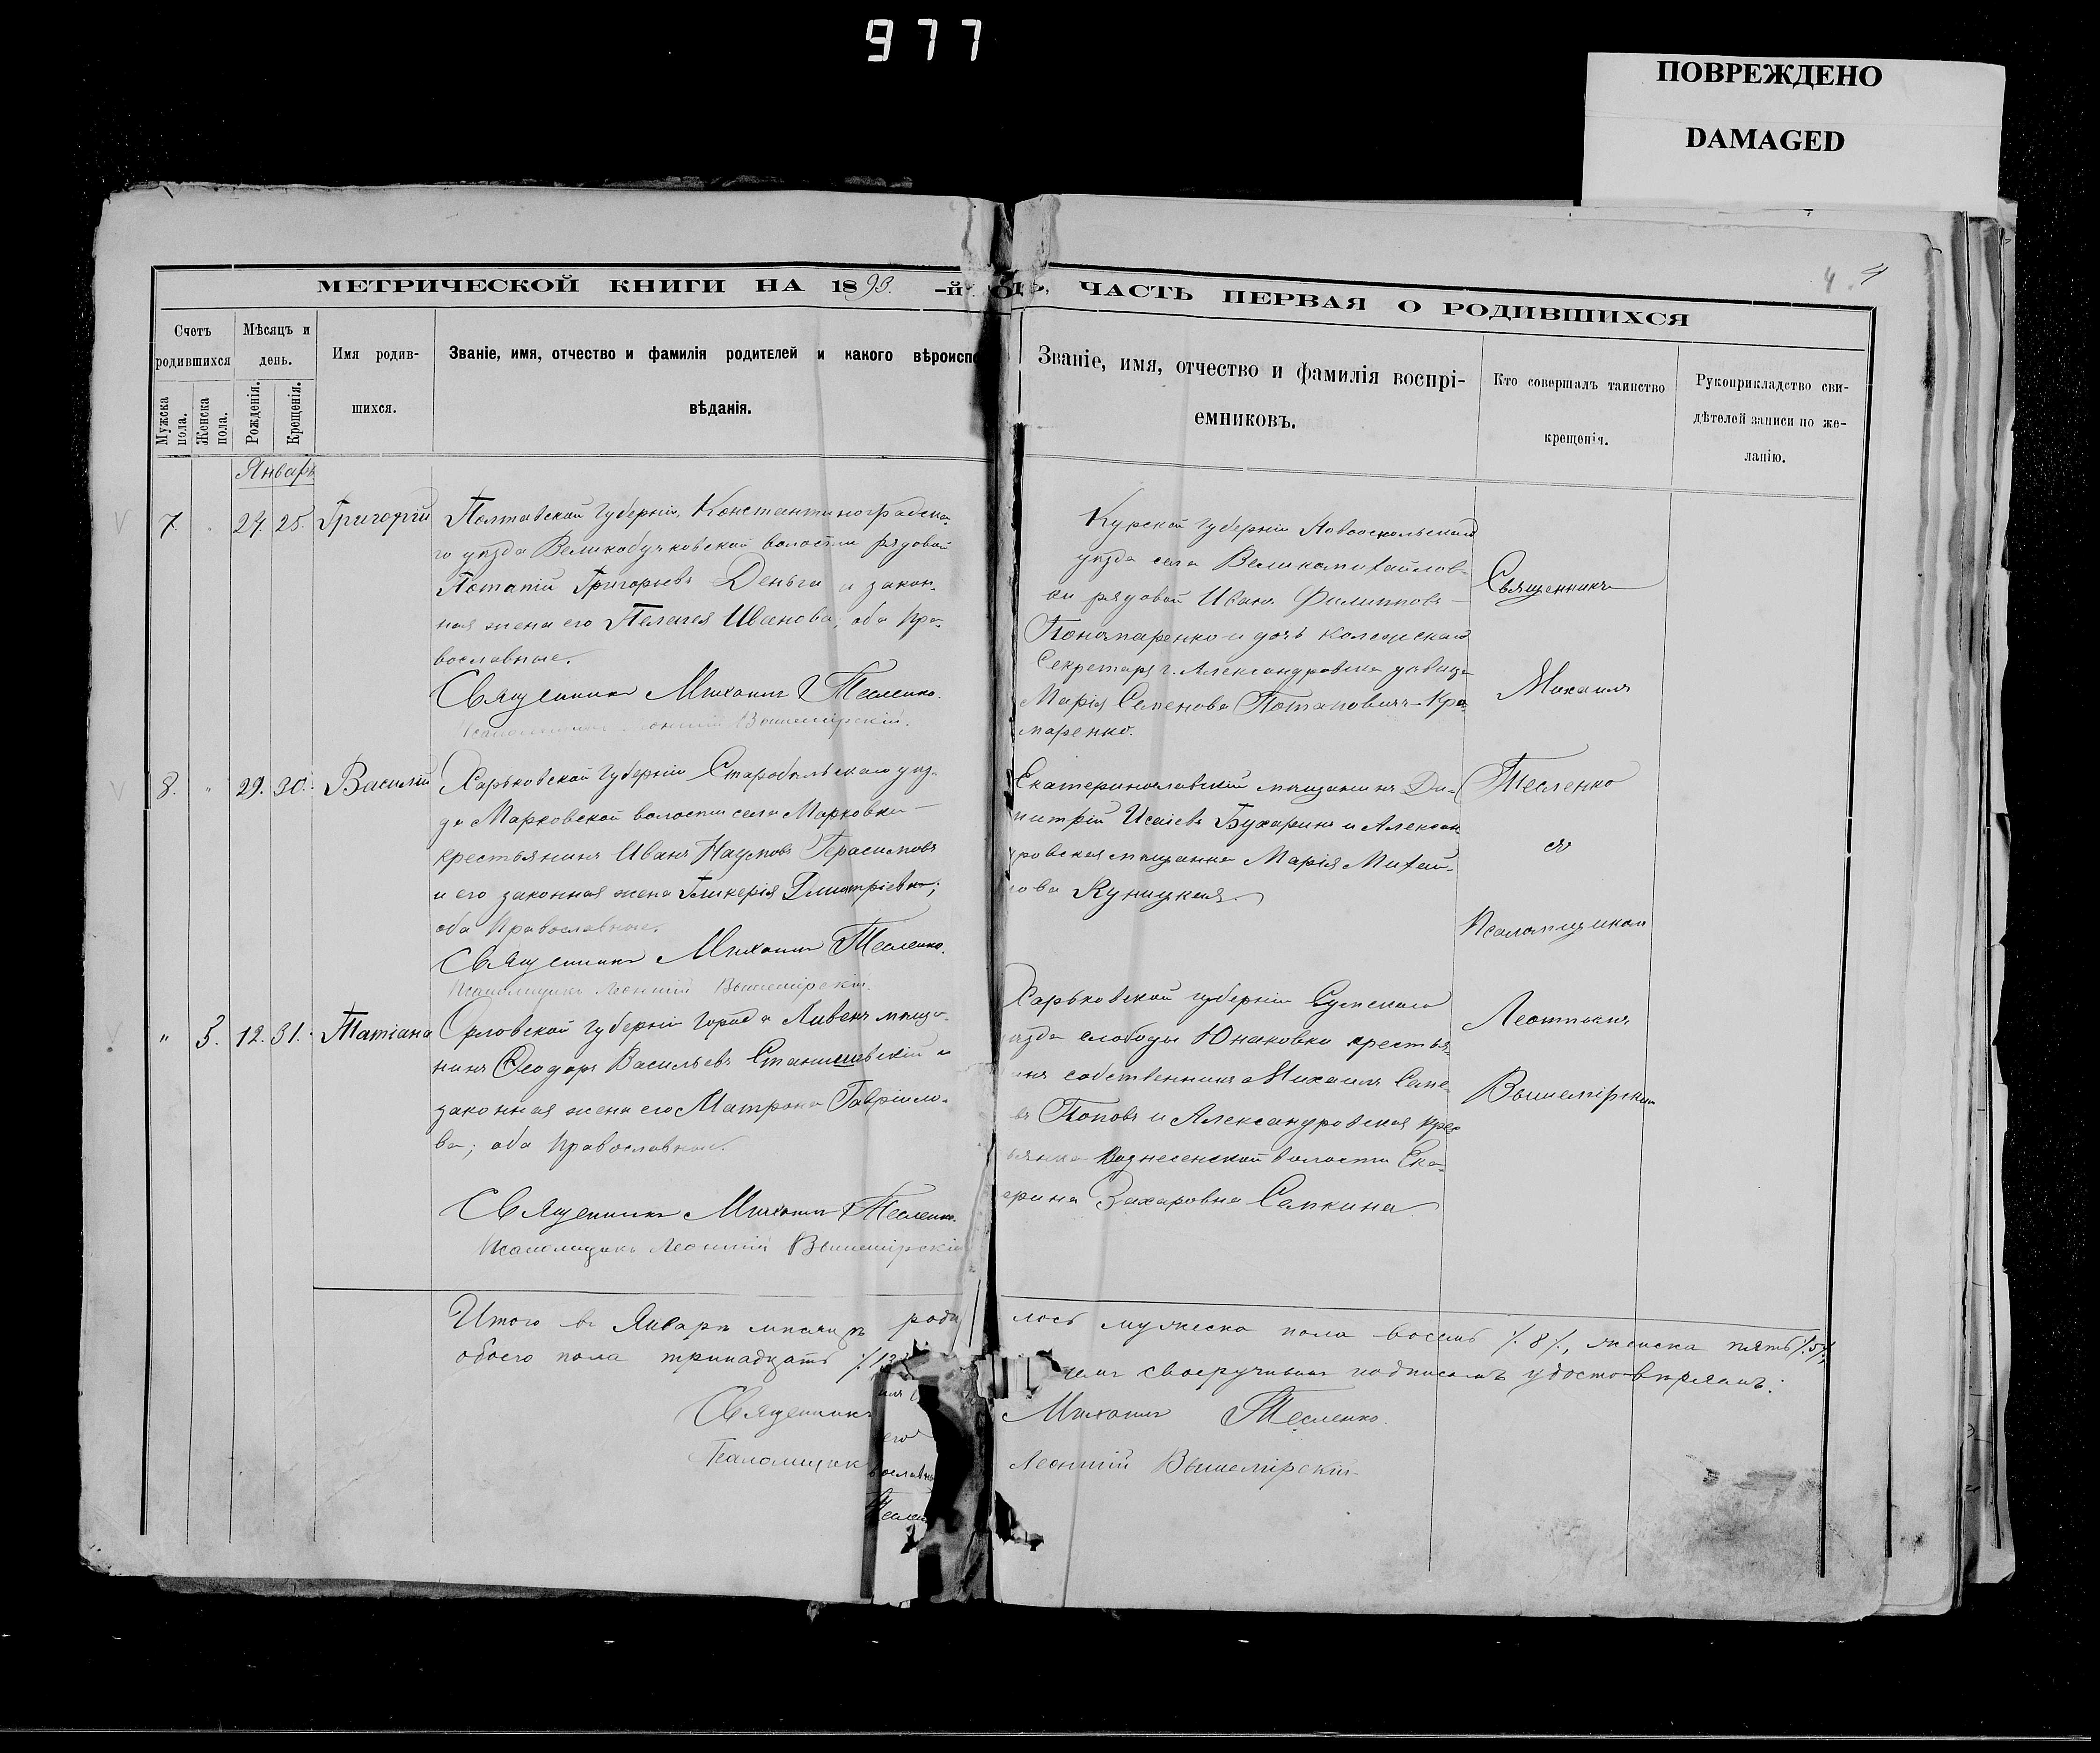 977
ПОВРЕЖДЕНО
DAMAGED
4. 4
МЕТРИЧЕСКОЙ КНИГИ НА 1893.-й
ЧАСТЬ ПЕРВАЯ О РОДИВШИХСЯ
Счетъ родившихся
Мужска пола.
Женска пола.
Мѣсяцъ и день.
Рожденія.
Крещенія.
Имя родив-
шихся.
Званіе, имя, отчество и фамилія родителей и какого вѣроиспо
вѣданія.
Званіе, имя, отчество и фамилія воспрі-
емниковъ.
Кто совершалъ таинство
крещенія.
Рукоприкладство сви-
дѣтелей записи по же-
ланію.
Январь
7. 24. 25. Григорій
Полтавской губерніи, Константиноградска-
го уѣзда Великобучковской волости рядовой
Потапій Григорьевъ Деньга и закон-
ная жена его Пелагея Иванова; оба Пра-
вославные.
Священникъ Михаилъ Тесленко.
Вышемірскій.
Курской губерніи Новооскольскаго
уѣзда села Великомихайлов-
ки рядовой Иванъ Филипповъ
Пономаренко и дочь Колежскаго
Секретаря г. Александровска дѣвица
Марія Семенова Потаповичъ-Кра-
маренко.
8. " 29. 30. Василій
Харьковской губерніи Старобѣльскаго уѣз-
да Марковской волости села Марковки
крестьянинъ Иванъ Наумовъ Герасимовъ
и его законная жена Гликерія Дмитріевна;
оба Православные.
Священникъ Михаилъ Тесленко.
Псаломщикъ Леонтій Вышемірскій.
Екатеринославскій мѣщанинъ Ди-
митрій Исаіевъ Бухаринъ и Алексан
ровская мѣщанка Марія Михай-
лова Куницкая.
" 5. 12. 31. Татіана
Орловской губерніи города Ливенъ мѣща-
нинъ Ѳеодоръ Васильевъ Станишевскій и
законная жена его Матрона Гавріило-
ва; оба Православные.
Священникъ Михаилъ Тесленко.
Псаломщикъ Леонтій Вышемірскій
Харьковской губерніи Сумскаго
уѣзда слободы Юнаковки крестья-
инъ собственникъ Михаилъ Семе-
въ Поповъ и Александровская крес
ьянка Вознесенской волости Ека-
ерина Захаровна Сапкина
Священникъ
Михаилъ
Тесленко
съ
Псаломщикомъ
Леонтіемъ
Вышемірскимъ
Итого въ Январѣ мѣсяцѣ роди лось мужеска пола восемь /.8/., женска пять /.5/.,
обоего пола тринадцать /.13 чемъ своеручнымъ подписомъ удостовѣряемъ:
Священникъ Михаилъ Тесленко.
Псаломщикъ Леонтій Вышемірскій